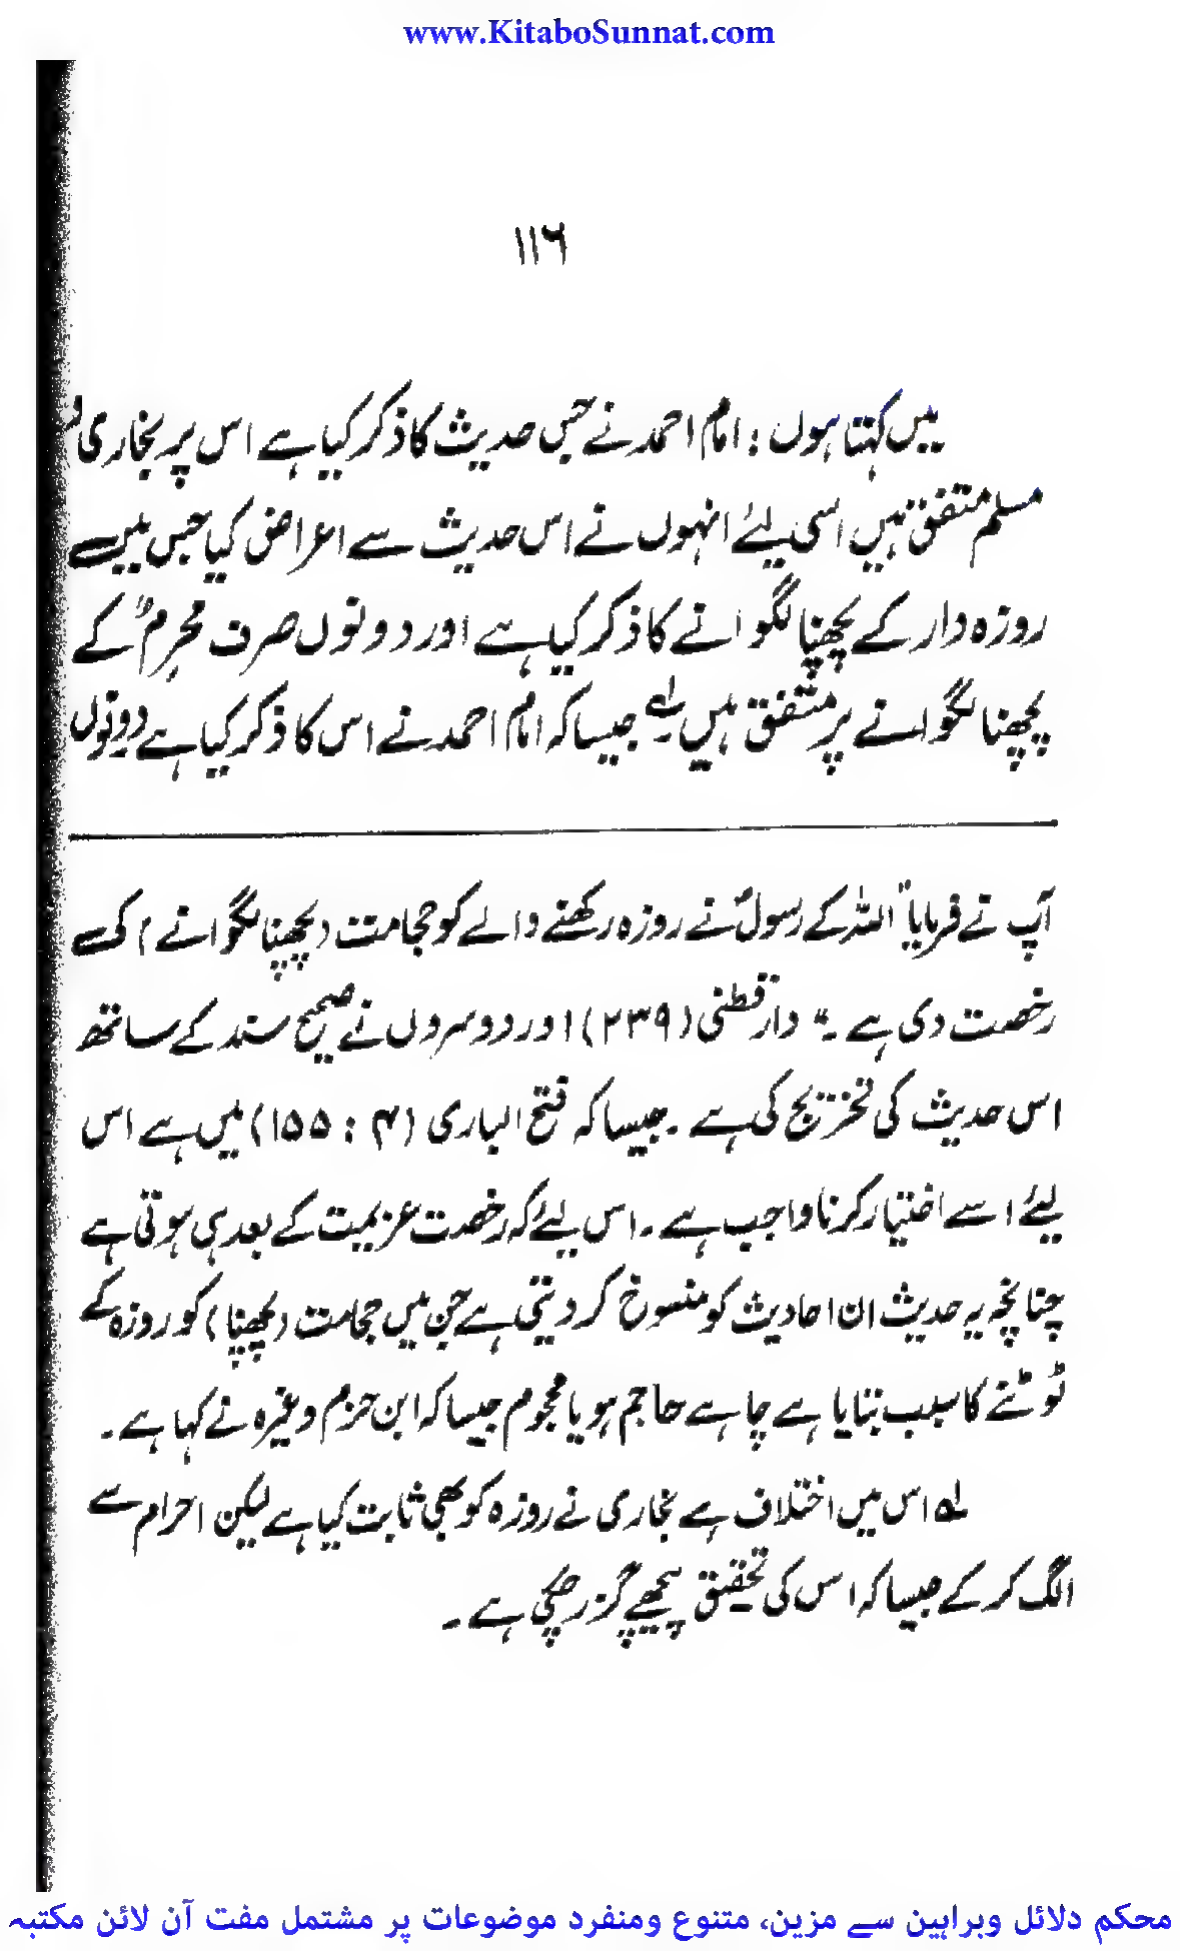 www.KitaboSunnat.com
۱۱۶
میں کہتا ہوں : امام احمد نے جس حدیث کا ذکر کیا ہے اس پر بخاری و
مسلم متفق ہیں اسی لیئے انہوں نے اس حدیث سے اعراض کیا جس میں سے
روزہ دار کے پچھنا لگوانے کا ذکر کیا ہے اور دونوں صرف "محرم" کے
پچھنا لگوانے پر متفق ہیں ۔لہ جیسا کہ امام احمد نے اس کا ذکر کیا ہے دونوں
آپ نے فرمایا "اللہ کے رسولؐ نے روزہ رکھنے والے کو حجامت (پچھنا لگوانے) کی سے
رخصت دی ہے ۔" دارقطنی (۲۳۹) اور دوسروں نے صحیح سند کے ساتھ
اس حدیث کی تخریج کی ہے ۔ جیسا کہ فتح الباری (۴ : ۱۵۵) میں ہے اس
لیئے اسے اختیار کرنا واجب ہے ۔ اس لیئے کہ رخصت عزیمت کے بعد ہی ہوتی ہے
چنانچہ یہ حدیث ان احادیث کو منسوخ کر دیتی ہے جن میں حجامت (پچھنا) کو روزہ کے
ٹوٹنے کا سبب بتایا ہے چاہے حاجم ہو یا محجوم جیسا کہ ابن حزم وغیرہ نے کہا ہے ۔
لہ اس میں اختلاف ہے بخاری نے روزہ کو بھی ثابت کیا ہے لیکن احرام سے
الگ کر کے جیسا کہ اس کی تحقیق پیچھے گزر چکی ہے ۔
محکم دلائل وبراہین سے مزین، متنوع ومنفرد موضوعات پر مشتمل مفت آن لائن مکتبہ